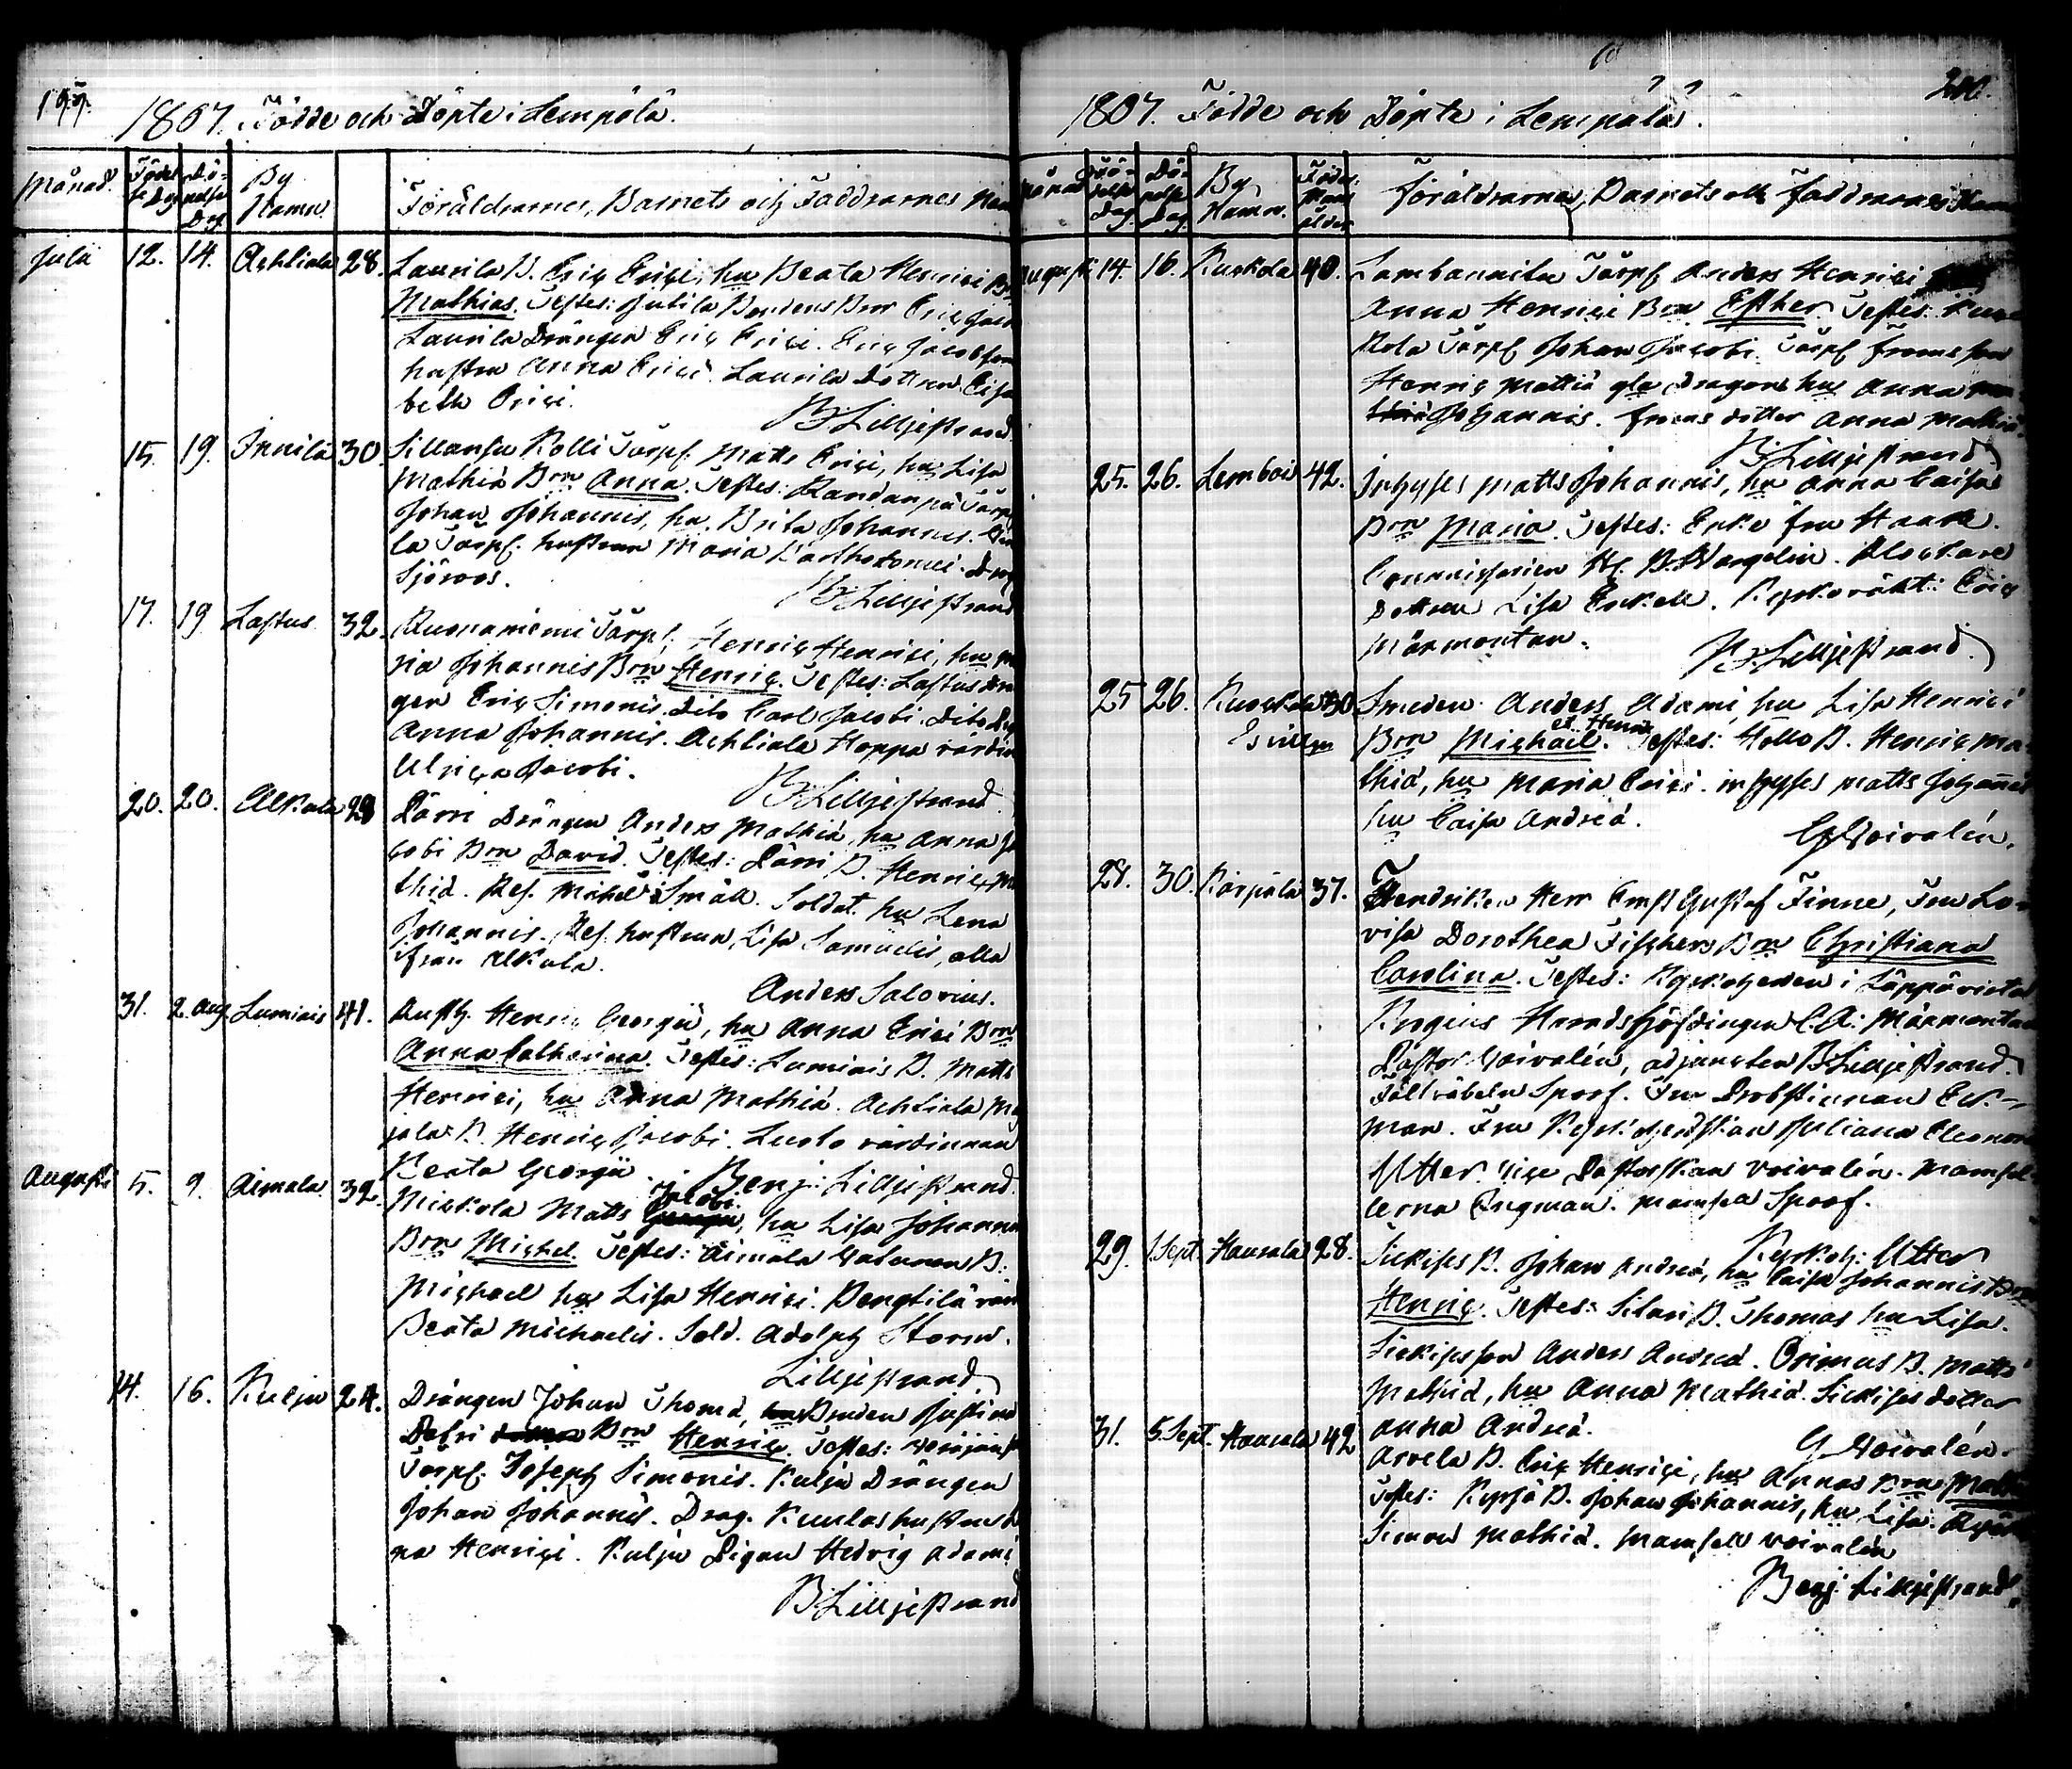 199.
1807. Födde och Döpte i Lempälä.
Månad. Födel- se Dag Dö- pelse Dag By Namn Föräldrarnes, Barnets och Faddrarnes Namn
Julii 12. 14. Achtiala 28. Laurila B. Eric Erici, hu Beata Henrici Brn
Mathias. Testes: Jutila Bondens Bror Eric Jacob
Laurila Drängen Eric Erici. Eric Jacobsson
hustru Anna Erici. Laurila Dottren Elisa
beth Erici.
B Lilljestrand
15. 19. Innilä 30. Sillansu Kolli Torpf. Matts Erici, hu Lisa
Mathiæ Brn Anna. Testes: Randanpä Torpf
Johan Johannis, hu Brita Johannis.
la Torpf. hustrun Maria Bartholomei. Drag
Sjöroos.
B Lilljestrand
17. 19. Lastus 32. Ruonaniemi Torpf. Henric Henrici, hu Ma
ria Johannis Brn Henric. Testes: Lastus Drän
gen Eric Simonis. Dito Carl Jacobi. Dito
Anna Johannis. Achtiala Hoppa värdin
Ulrica Jacobi.
B Lilljestrand
20. 20. Alkula 28 Pärri Drängen Anders Mathiæ, hu Anna Ja
cobi Brn David. Testes: Pärri B. Henric Ma
thiæ. Res. Michel Småll. Soldat. hu Lena
Johannis. Res. hustrun Lisa Samuelis, alla
ifrån Alkula.
Anders Salovius.
31. 2. Aug. Lumiais 41. Rusth. Henric Georgii, hu Anna Erici Brn
Anna Catharina. Testes: Lumiais B. Matts
Henrici, hu Anna Mathiæ. Achtiala Ma
jala B. Henric Jacobi. Luoto värdinnan
Beata Georgii. Benj: Lilljestrand.
Augusti 5. 9. Aimala 32. Mickola Matts Jacobi, hu Lisa Johannis
Brn Michel. Testes: Aimala B.
Michael hu Lisa Henrici. Bengtilä värd
Beata Michaelis. Sold. Adolph Storm.
Lilljestrand
14. 16. Kulju 24. Drängen Johan Thomæ, Bruden Justina
Brn Henric. Testes:
Torpf. Joseph Simonis. Kulju Drängen
Johan Johannis. Drag. Kuulas hustru
na Henrici. Kulju Pigan Hedvig Adami
B. Lilljestrand
200.
1807. Födde och Döpte i Lempälä.
Månad Fö- delse Dag. Dö- pelse Dag. By Namn. Föder. Mons ålder Föräldrarnas, Barnets och Faddrarnes Namn
Augusti 14. 16. Kuokola 40. Lambannilu Torpf Anders Henrici
Anna Henrici Brn Esther. Testes: Kuo
kola Torpf Johan Jacobi. Torpf
Henric Mattiæ gla Dragon hu Anna
Johannis. dotter Anna Mathiæ.
B. Lilljestrand
25. 26. Lembois 42. Inhyses Matts Johannis, hu Anna Caisa
Brn Maria. Testes: Enke fru Haark.
Commissarien Hr. B. Wargelin. Klockare
Dottren Lisa Enkell. Kyrkovakt: Eric
Mårmontan.
B. Lilljestrand.
25 26. Kuokola 30 Smeden Anders Adami, hu Lisa Henrici
Brn Michaël. Testes: Höllö B. Henric Ma-
thiæ, hu Maria Erici. inhyses Matts Johannis
hu Caisa Andreæ.
G Woivalén.
28. 30. Kärpälä 37. Fendriken Herr Ernst Gustaf Finne, Fru Lo-
visa Dorothea Fischers Brn Christiana
Carolina. Testes: Kyrkoherden i Läppävirta
Krogius Häradshöfdingen C.A: Mårmontan
Pastor Woivalén, adjuncten B Lilljestrand.
Fältväbeln Spoof. Fru Probstinnan Ek-
man. Fru Kyrkoherdskan Juliana Eleonora
Utter. Vice Pastorskan Voivalén. Mamsel-
lerna Engman. Mamsell Spoof.
Kyrkoh: Utter
29. 1 Sept. Hauvala 28. Sickises B. Johan Andreæ, hu Caisa Johannis Brn
Henric. Testes: B. Thomas hu Lisa.
Sickises son Anders Andreæ. Orimus B. Matts
Mathiæ, hu Anna Mathiæ. Sickises dotter
Anna Andreæ.
G Woivalén.
31. 5. Sept. Hauvala 42 Arvela B. Eric Henrici, hu Annas Brn
Testes: B. Johan Johannis, hu Lisa.
Simon Mathiæ. Mamsell Voivalén
Benj. Lilljestrand.